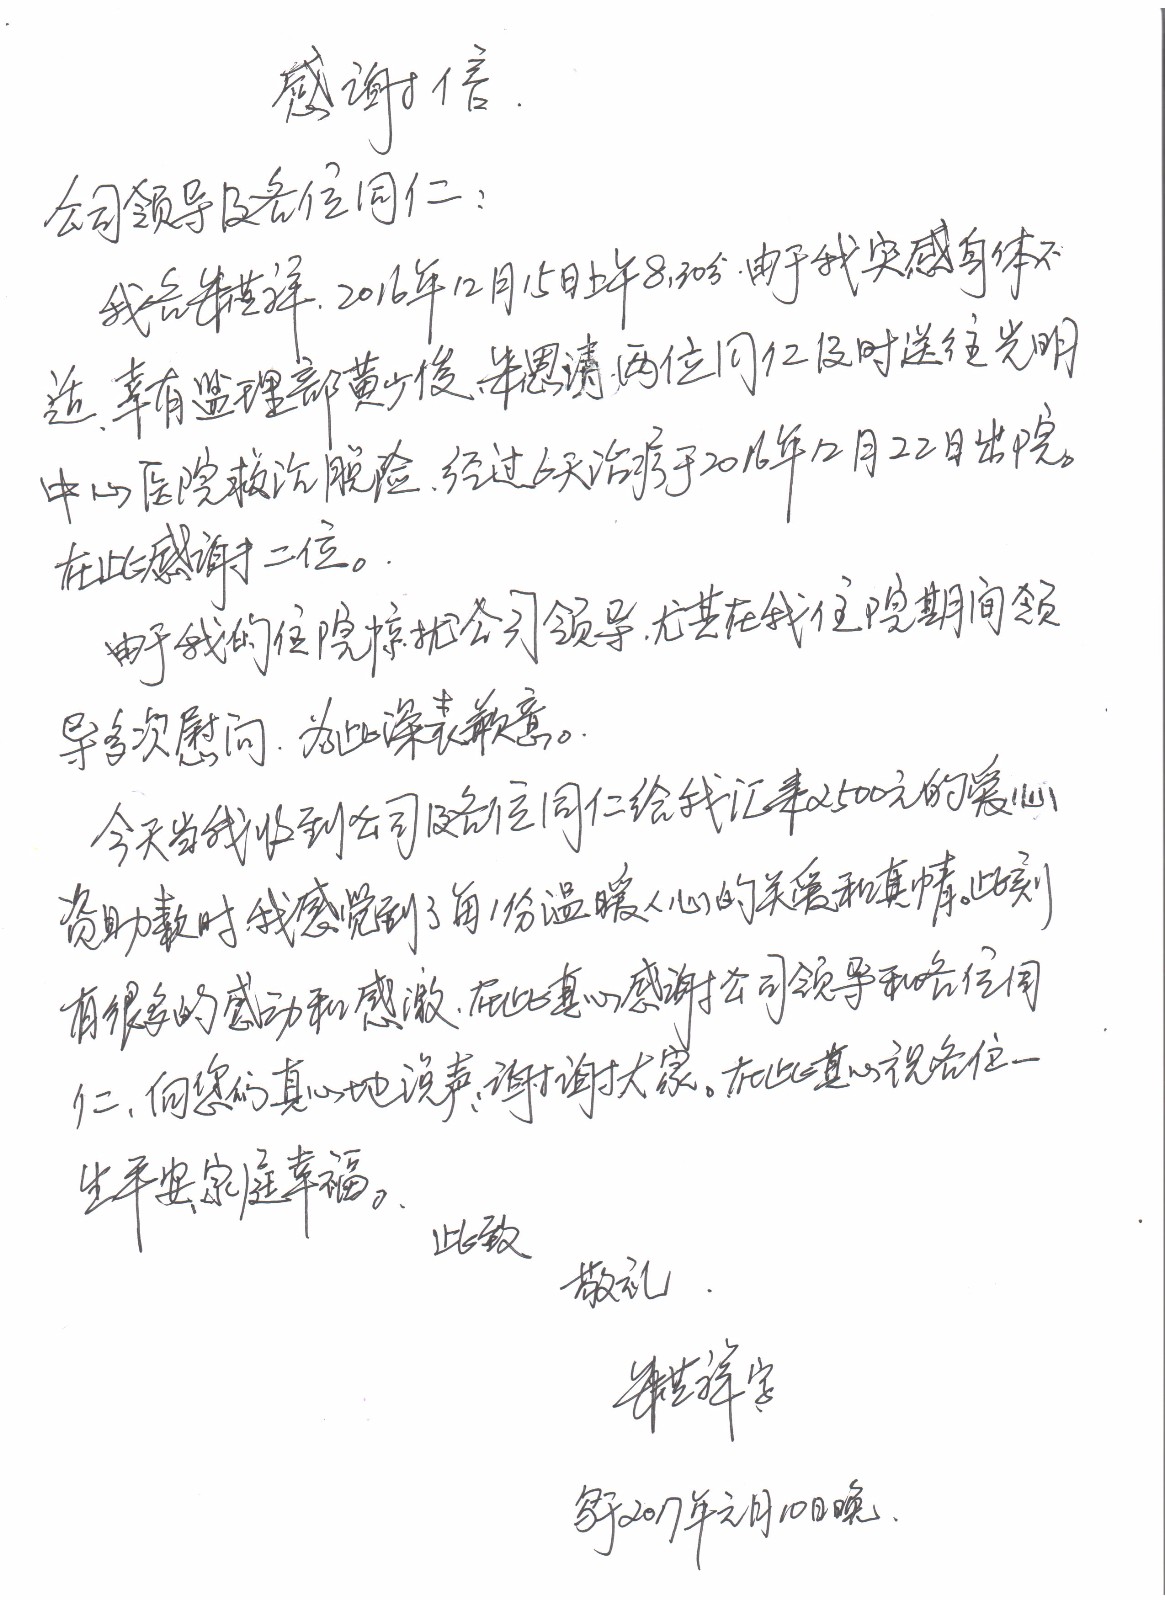 感谢信.
公司领导及各位同仁:
我名朱世祥.2016年12月15日上午8:30分.由于我突感身体不
适、幸有监理部黄少俊、朱恩清两位同仁及时送往光明
中心医院救治脱险.经过6天治疗于2016年12月22日出院。
在此感谢二位。
由于我的住院惊扰公司领导.尤其在我住院期间领
导多次慰问.为此深表歉意。
今天当我收到公司及各位同仁给我汇来2500元的爱心
资助款时.我感觉到了每1份温暖人心的关爱和真情。此刻
有很多的感动和感激.在此真心感谢公司领导和各位同
仁、向您们真心地说声:谢谢大家。在此真心祝各位一
生平安.家庭幸福。
此致
敬礼.
朱世祥字
写于2017年元月10日晚.